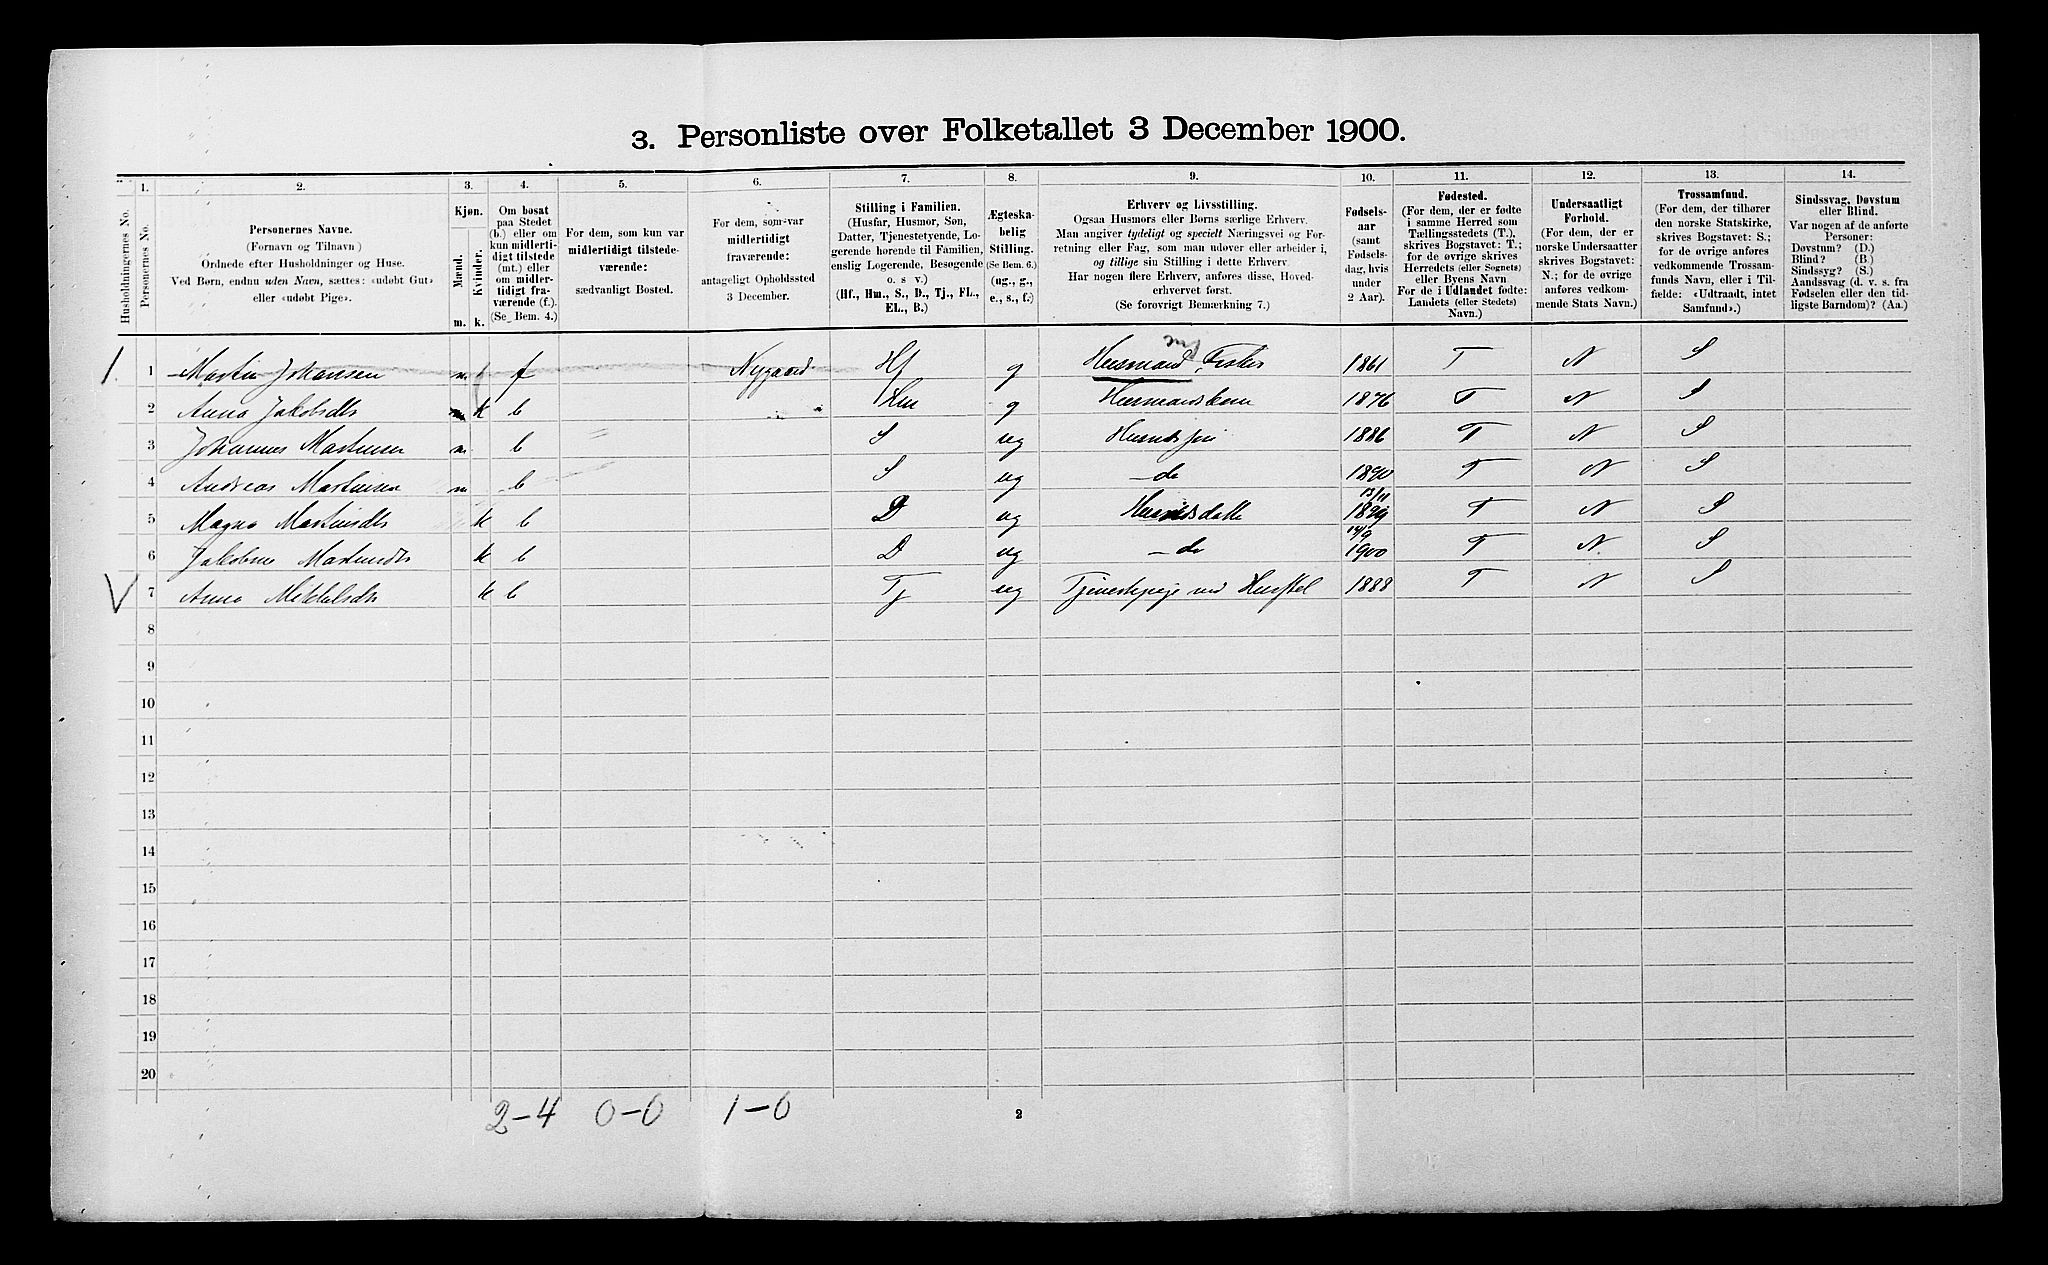 3. Personliste over Folketallet 3 December 1900.
1. 2. 3. 4. 5. 6. 7. 8. 9. 10. 11. 12. 13. 14.
Husholdningernes No.
Personernes No.
Personernes Navne.
(Fornavn og Tilnavn)
Ordnede efter Husholdninger og Huse.
Ved Børn, endnu uden Navn, sættes: «udøbt Gut»
eller «udøbt Pige».
Kjøn.
Mænd.
Kvinder.
m. k.
Om bosat
paa Stedet
(b.) eller om
kun midlerti-
digt tilstede
(mt.) eller
om midler-
tidigt fra-
værende (f.).
(Se Bem. 4.)
For dem, som kun var
midlertidigt tilstede-
værende:
sædvanligt Bosted.
For dem, som var
midlertidigt
fraværende:
antageligt Opholdssted
3 December.
Stilling i Familien.
(Husfar, Husmor, Søn,
Datter, Tjenestetyende, Lo-
gerende hørende til Familien,
enslig Logerende, Besøgende
o. s. v.)
(Hf., Hm., S., D., Tj., FL.,
EL., B.)
Ægteska-
belig
Stilling.
(Se Bem. 6.)
(ug., g.,
e., s., f.)
Erhverv og Livsstilling.
Ogsaa Husmors eller Børns særlige Erhverv.
Man angiver tydeligt og specielt Næringsvei og For-
retning eller Fag, som man udøver eller arbeider i,
og tillige sin Stilling i dette Erhverv.
Har nogen flere Erhverv, anføres disse, Hoved-
erhvervet først.
(Se forøvrigt Bemærkning 7.)
Fødsels-
aar
(samt
Fødsels-
dag, hvis
under
2 Aar).
Fødested.
(For dem, der er fødte
i samme Herred som
Tællingsstedets (T.),
skrives Bogstavet: T.;
for de øvrige skrives
Herredets (eller Sognets)
eller Byens Navn
For de i Udlandet fødte:
Landets (eller Stedets)
Navn.)
Undersaatligt
Forhold.
(For dem, der er
norske Undersaatter
skrives Bogstavet:
N.; for de øvrige
anføres vedkom-
mende Stats Navn.)
Trossamfund.
(For dem, der tilhører
den norske Statskirke,
skrives Bogstavet: S.;
for de øvrige anføres
vedkommende Trossam-
funds Navn, eller i Til-
fælde: «Udtraadt, intet
Samfund».)
Sindssvag, Døvstum
eller Blind.
Var nogen af de anførte
Personer:
Døvstum? (D.)
Blind? (B.)
Sindssyg? (S.)
Aandssvag (d. v. s. fra
Fødselen eller den tid-
ligste Barndom)? (Aa.)
1. 1 Martin Johansen m f Nygaard Hf g Husmand, Fisker 1861 T N S
2 Anna Jakobsdtr k b Hm g Husmandskone 1876 T N S
3 Johannes Martinsen m b S ug 1886 T N S
4 Andreas Martinsen m b S ug do 1890 T N S
5 Magna Martinsdtr k b D ug 13/11 1899 T N S
6 Jakobine Martinsdtr k b D ug do 14/9 1900 T N S
7 Anna Mikkelsdtr k b Tj ug Tjenestepige ved Husstel 1888 T N S
8
9
10
11
12
13
14
15
16
17
18
19
20
2-4 0-0 1-0 2